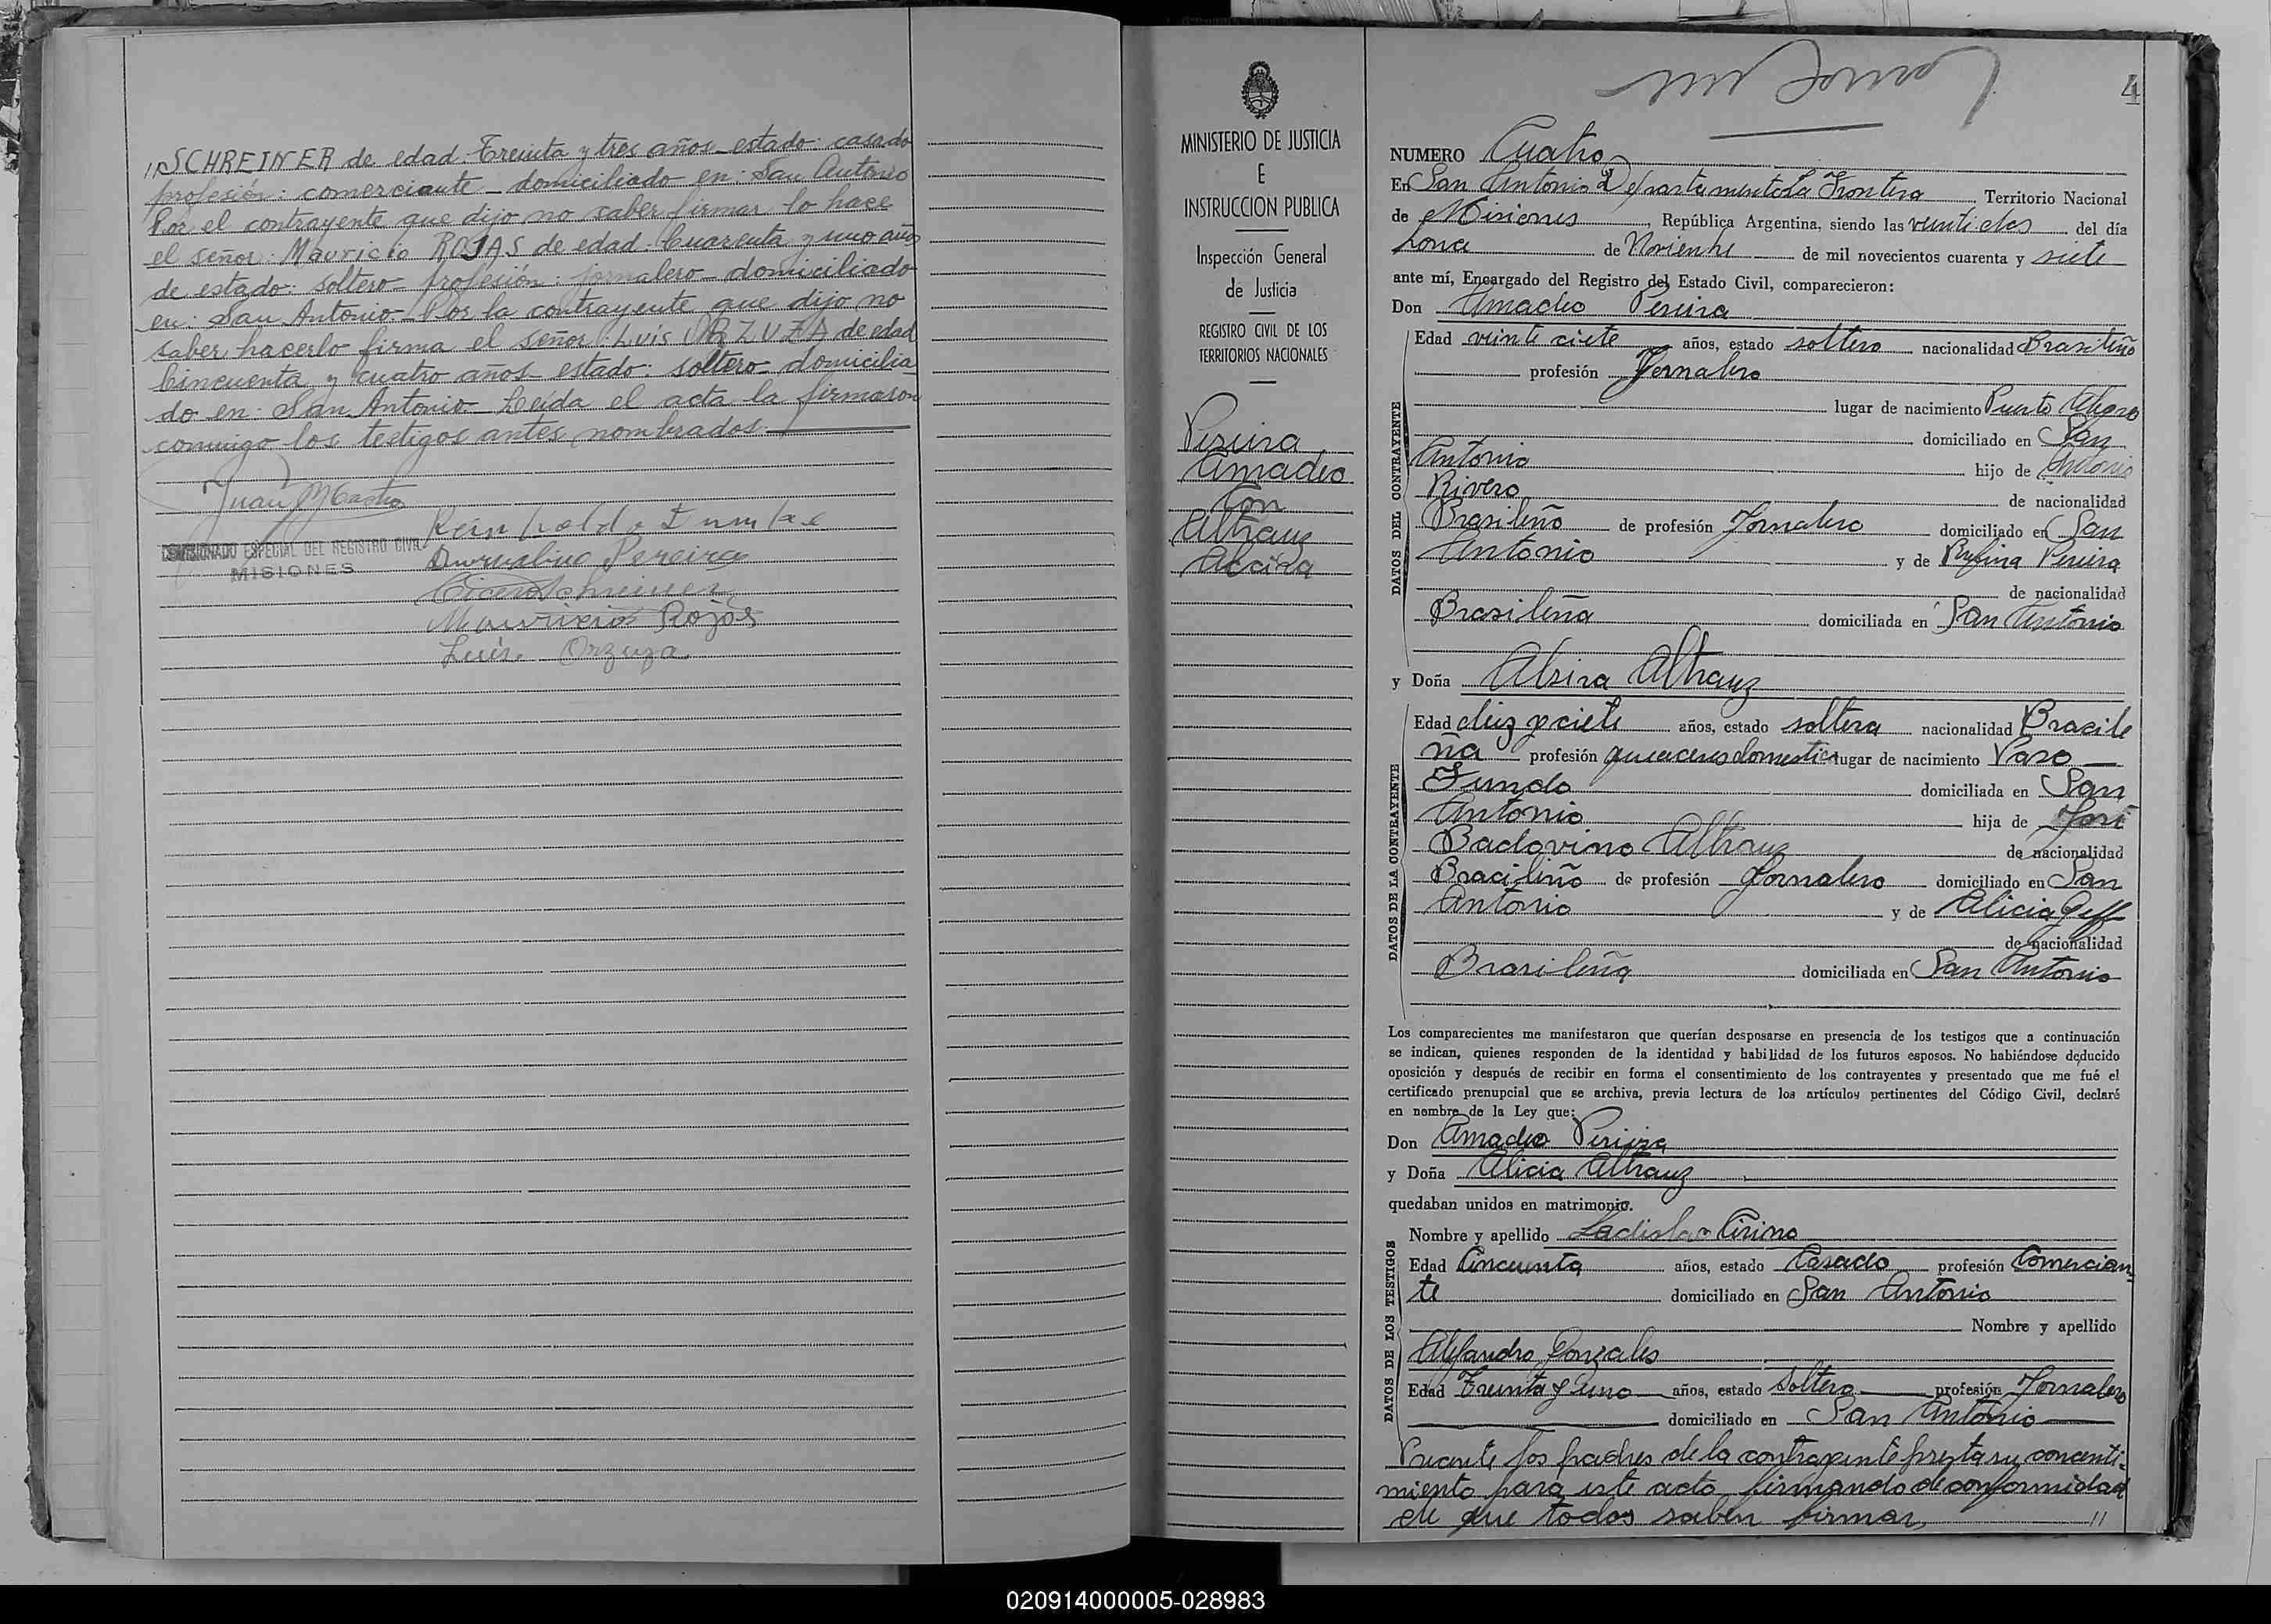 "SCHREINER de edad. Treinta y tres años_estado: casado
profesión: comerciante_domiciliado en: San Antonio
Por el contrayente que dijo no saber firmar lo hace
el señor: Mauricio ROJAS de edad. Cuarenta y uno años
de estado: soltero_profesión: jornalero_domiciliado
en: San Antonio_Por la contrayente que dijo no
saber hacerlo firma el señor: Luis ORZUZA de edad
Cincuenta y cuatro años_estado: soltero_domicilia
do en: San Antonio_Leida el acta la firmaron
conmigo los testigos antes nombrados.
Juan M Castro
COMISIONADO ESPECIAL DEL REGISTRO CIVIL
MISIONES
Durvalino Pereira
Cicero Schreiner
Mauricio Rojas
Luis Orzuza
MINISTERIO DE JUSTICIA
E
INSTRUCCION PUBLICA
Inspección General
de Justicia
REGISTRO CIVIL DE LOS
TERRITORIOS NACIONALES
Pereira
Amadeo
Con
Altrauz
Alcira
4
NUMERO Cuatro
En San Antonio Departamento La Frontera Territorio Nacional
de Misiones, República Argentina, siendo las veinti dos del día
de Noviembre de mil novecientos cuarenta y siete
ante mí, Encargado del Registro del Estado Civil, comparecieron:
Don Amadeo Pereira
DATOS DEL CONTRAYENTE
Edad veinte ciete años, estado soltero nacionalidad Brasileño
profesión Jornalero
lugar de nacimiento Puerto Alegro
domiciliado en San
Antonio hijo de Antonio
Rivero de nacionalidad
Brasileño de profesión Jornalero domiciliado en San
Antonio y de Rufina Pereira
de nacionalidad
Brasileña domiciliada en San Antonio
y Doña Alsira Altrauz
DATOS DE LA CONTRAYENTE
Edad diez y ciete años, estado soltera nacionalidad Bracile
ña profesión queaceres domestico lugar de nacimiento Paso
Fundo domiciliada en San
Antonio hija de José
Badovino Altrauz de nacionalidad
Bracileño de profesión Jornalero domiciliado en San
Antonio y de Alicia Peff
de nacionalidad
Brasileña domiciliada en San Antonio
Los comparecientes me manifestaron que querían desposarse en presencia de los testigos que a continuación
se indican, quienes responden de la identidad y habilidad de los futuros esposos. No habiéndose deducido
oposición y después de recibir en forma el consentimiento de los contrayentes y presentado que me fué el
certificado prenupcial que se archiva, previa lectura de los artículos pertinentes del Código Civil, declaré
en nombre de la Ley que:
Don Amadeo Perieira
y Doña Alicia Altrauz
quedaban unidos en matrimonio.
DATOS DE LOS TESTIGOS
Nombre y apellido Ladislao Cirino
Edad Cincuenta años, estado Casado profesión Comercian-
te domiciliado en San Antonio
Nombre y apellido
Alejandro Gonzales
Edad Treinta y uno años, estado Soltero profesión Jornalero
domiciliado en San Antonio
Precente los padres de la contrayente presta su concenti-
miento para este acto, firmando de conformidad
de que todos saben firmar, //
020914000005-028983